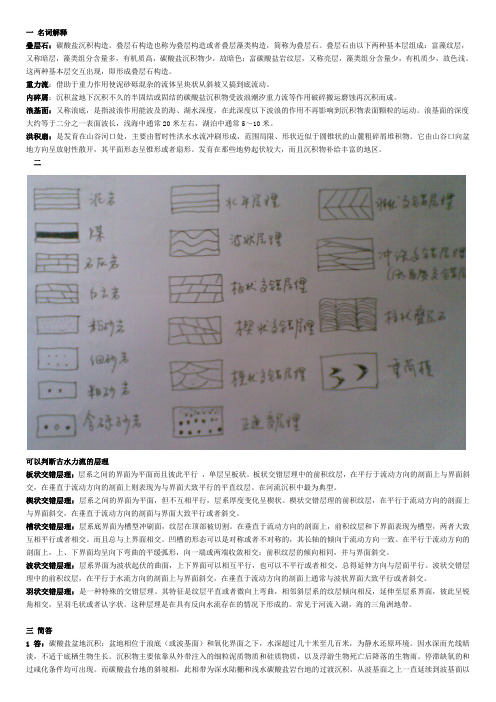 一 名词解释
叠层石：碳酸盐沉积构造。叠层石构造也称为叠层构造或者叠层藻类构造，简称为叠层石。叠层石由以下两种基本层组成：富藻纹层，
又称暗层，藻类组分含量多，有机质高，碳酸盐沉积物少，故暗色；富碳酸盐岩纹层，又称亮层，藻类组分含量少，有机质少，故色浅。
这两种基本层交互出现，即形成叠层石构造。
重力流：借助于重力作用使泥砂砾混杂的流体呈块状从斜坡又搞到底流动。
内碎屑：沉积盆地下沉积不久的半固结或固结的碳酸盐沉积物受波浪潮汐重力流等作用破碎搬运磨蚀再沉积而成。
浪基面：又称浪底，是指波浪作用能波及的海、湖水深度，在此深度以下波浪的作用不再影响到沉积物表面颗粒的运动。浪基面的深度
大约等于二分之一表面波长，浅海中通常 20 米左右，湖泊中通常 5～10 米。
洪积扇：是发育在山谷河口处，主要由暂时性洪水水流冲刷形成、范围局限、形状近似于圆锥状的山麓粗碎屑堆积物。它由山谷口向盆
地方向呈放射性散开，其平面形态呈锥形或者扇形。发育在那些地势起伏较大，而且沉积物补给丰富的地区。
二
泥岩 水平层理 羽状交错层理
煤 波状层理 冲洗交错层理
石灰岩 板状交错层理
白云岩 楔状交错层理 柱状叠层石
粉砂岩 槽状交错层理 重荷模
细砂岩 正递变层理
粗砂岩
含砾砂岩
可以判断古水力流的层理
板状交错层理：层系之间的界面为平面而且彼此平行 ，单层呈板状。板状交错层理中的前积纹层，在平行于流动方向的剖面上与界面斜
交，在垂直于流动方向的剖面上则表现为与界面大致平行的平直纹层。在河流沉积中最为典型。
楔状交错层理：层系之间的界面为平面，但不互相平行，层系厚度变化呈楔状。楔状交错层理的前积纹层，在平行于流动方向的剖面上
与界面斜交，在垂直于流动方向的剖面与界面大致平行或者斜交。
槽状交错层理：层系底界面为槽型冲刷面，纹层在顶部被切割。在垂直于流动方向的剖面上，前积纹层和下界面表现为槽型，两者大致
互相平行或者相交，而且总与上界面相交。凹槽的形态可以是对称或者不对称的，其长轴的倾向于流动方向一致。在平行于流动方向的
剖面上，上、下界面均呈向下弯曲的平缓弧形，向一端或两端收敛相交；前积纹层的倾向相同，并与界面斜交。
波状交错层理：层系界面为波状起伏的曲面，上下界面可以相互平行，也可以不平行或者相交，总得延伸方向与层面平行。波状交错层
理中的前积纹层，在平行于水流方向的剖面上与界面斜交，在垂直于流动方向的剖面上通常与波状界面大致平行或者斜交。
羽状交错层理：是一种特殊的交错层理。其特征是纹层平直或者微向上弯曲，相邻斜层系的纹层倾向相反，延伸至层系界面，彼此呈锐
角相交，呈羽毛状或者认字状。这种层理是在具有反向水流存在的情况下形成的。常见于河流入湖、海的三角洲地带。
三 简答
1 答：碳酸盐盆地沉积：盆地相位于浪底（或波基面）和氧化界面之下，水深超过几十米至几百米，为静水还原环境。因水深而光线暗
淡，不适于底栖生物生长。沉积物主要依靠从外带注入的细粒泥质物质和硅质物质，以及浮游生物死亡后降落的生物雨。停滞缺氧的和
过咸化条件均可出现。而碳酸盐台地的斜坡相，此相带为深水陆棚和浅水碳酸盐岩台地的过渡沉积，从波基面之上一直延续到波基面以